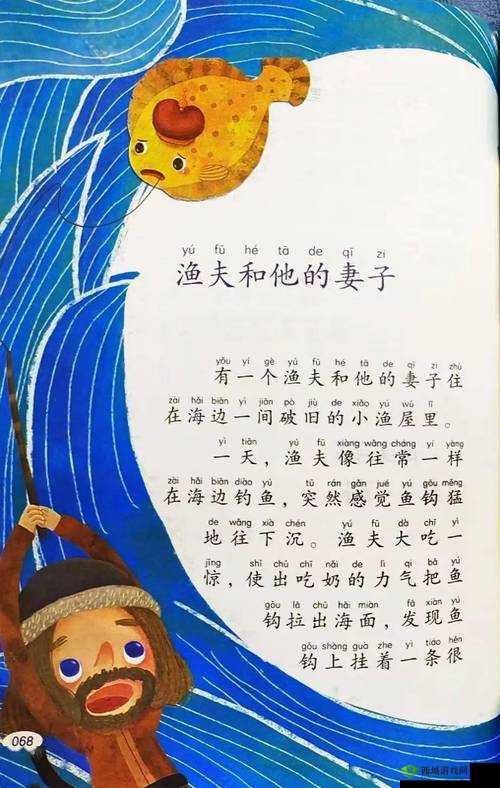 yú fū hé tā de qī zi
渔夫和他的妻子
yǒu yí gè yú fū hé tā de qī zi zhù
有一个渔夫和他的妻子住
zài hǎi biān yì jiān pò jiù de xiǎo yú wū lǐ
在海边一间破旧的小渔屋里。
yì tiān yú fū xiàng wǎng cháng yí yàng
一天，渔夫像往常一样
zài hǎi biān diào yú tū rán gǎn jué yú gōu měng
在海边钓鱼，突然感觉鱼钩猛
de wǎng xià chén yú fū dà chī yì
地往下沉。渔夫大吃一
jīng shǐ chū chī nǎi de lì qì bǎ yú
惊，使出吃奶的力气把鱼
gōu lā chū hǎi miàn fā xiàn yú
钩拉出海面，发现鱼
gōu shàng guà zhe yì tiáo hěn
钩上挂着一条很
068
西城游戏网